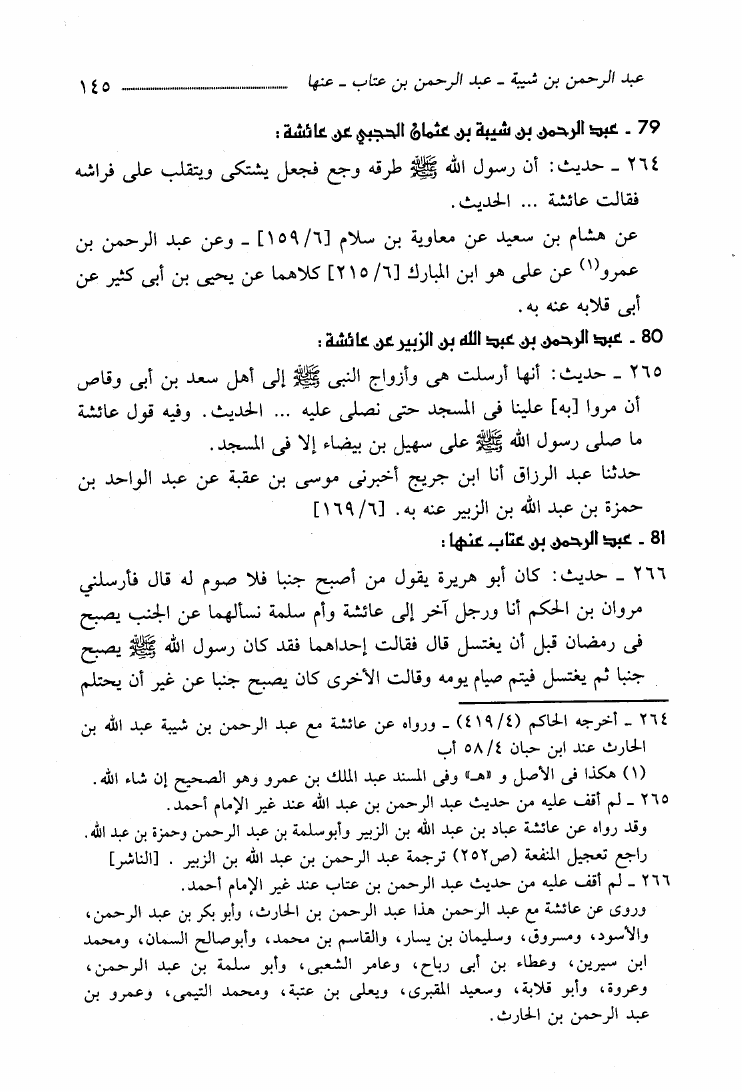 عبد الرحمن بن شيبة ـ عبد الرحمن بن عتاب ـ عنها ١٤٥
79 ـ عبد الرحمن بن شيبة بن عثمان الحجبي عن عائشة :
٢٦٤ ـ حديث : أن رسول الله ﷺ طرقه وجع فجعل يشتكى ويتقلب على فراشه
فقالت عائشة ... الحديث .
عن هشام بن سعيد عن معاوية بن سلام [٦/ ١٥٩] ـ وعن عبد الرحمن بن
عمرو(١) عن على هو ابن المبارك [٦/ ٢١٥] كلاهما عن يحيى بن أبى كثير عن
أبى قلابه عنه به .
80 ـ عبد الرحمن بن عبد الله بن الزبير عن عائشة :
٢٦٥ ـ حديث : أنها أرسلت هى وأزواج النبى ﷺ إلى أهل سعد بن أبى وقاص
أن مروا [به] علينا فى المسجد حتى نصلى عليه ... الحديث . وفيه قول عائشة
ما صلى رسول الله ﷺ على سهيل بن بيضاء إلا فى المسجد .
حدثنا عبد الرزاق أنا ابن جريج أخبرنى موسى بن عقبة عن عبد الواحد بن
حمزة بن عبد الله بن الزبير عنه به . [٦/ ١٦٩]
81 ـ عبد الرحمن بن عتاب عنها :
٢٦٦ ـ حديث : كان أبو هريرة يقول من أصبح جنبا فلا صوم له قال فأرسلني
مروان بن الحكم أنا ورجل آخر إلى عائشة وأم سلمة نسألهما عن الجنب يصبح
فى رمضان قبل أن يغتسل قال فقالت إحداهما فقد كان رسول الله ﷺ يصبح
جنبا ثم يغتسل فيتم صيام يومه وقالت الأخرى كان يصبح جنبا عن غير أن يحتلم
٢٦٤ ـ أخرجه الحاكم (٤/ ٤١٩) ـ ورواه عن عائشة مع عبد الرحمن بن شيبة عبد الله بن
الحارث عند ابن حبان ٤/ ٥٨ أب
(١) هكذا فى الأصل و «هـ» وفى المسند عبد الملك بن عمرو وهو الصحيح إن شاء الله .
٢٦٥ ـ لم أقف عليه من حديث عبد الرحمن بن عبد الله عند غير الإمام أحمد .
وقد رواه عن عائشة عباد بن عبد الله بن الزبير وأبوسلمة بن عبد الرحمن وحمزة بن عبد الله .
راجع تعجيل المنفعة (ص٢٥٢) ترجمة عبد الرحمن بن عبد الله بن الزبير . [الناشر]
٢٦٦ ـ لم أقف عليه من حديث عبد الرحمن بن عتاب عند غير الإمام أحمد .
وروى عن عائشة مع عبد الرحمن هذا عبد الرحمن بن الحارث، وأبو بكر بن عبد الرحمن،
والأسود، ومسروق، وسليمان بن يسار، والقاسم بن محمد، وأبوصالح السمان، ومحمد
ابن سيرين، وعطاء بن أبى رباح، وعامر الشعبى، وأبو سلمة بن عبد الرحمن،
وعروة، وأبو قلابة، وسعيد المقبرى، ويعلى بن عتبة، ومحمد التيمى، وعمرو بن
عبد الرحمن بن الحارث .